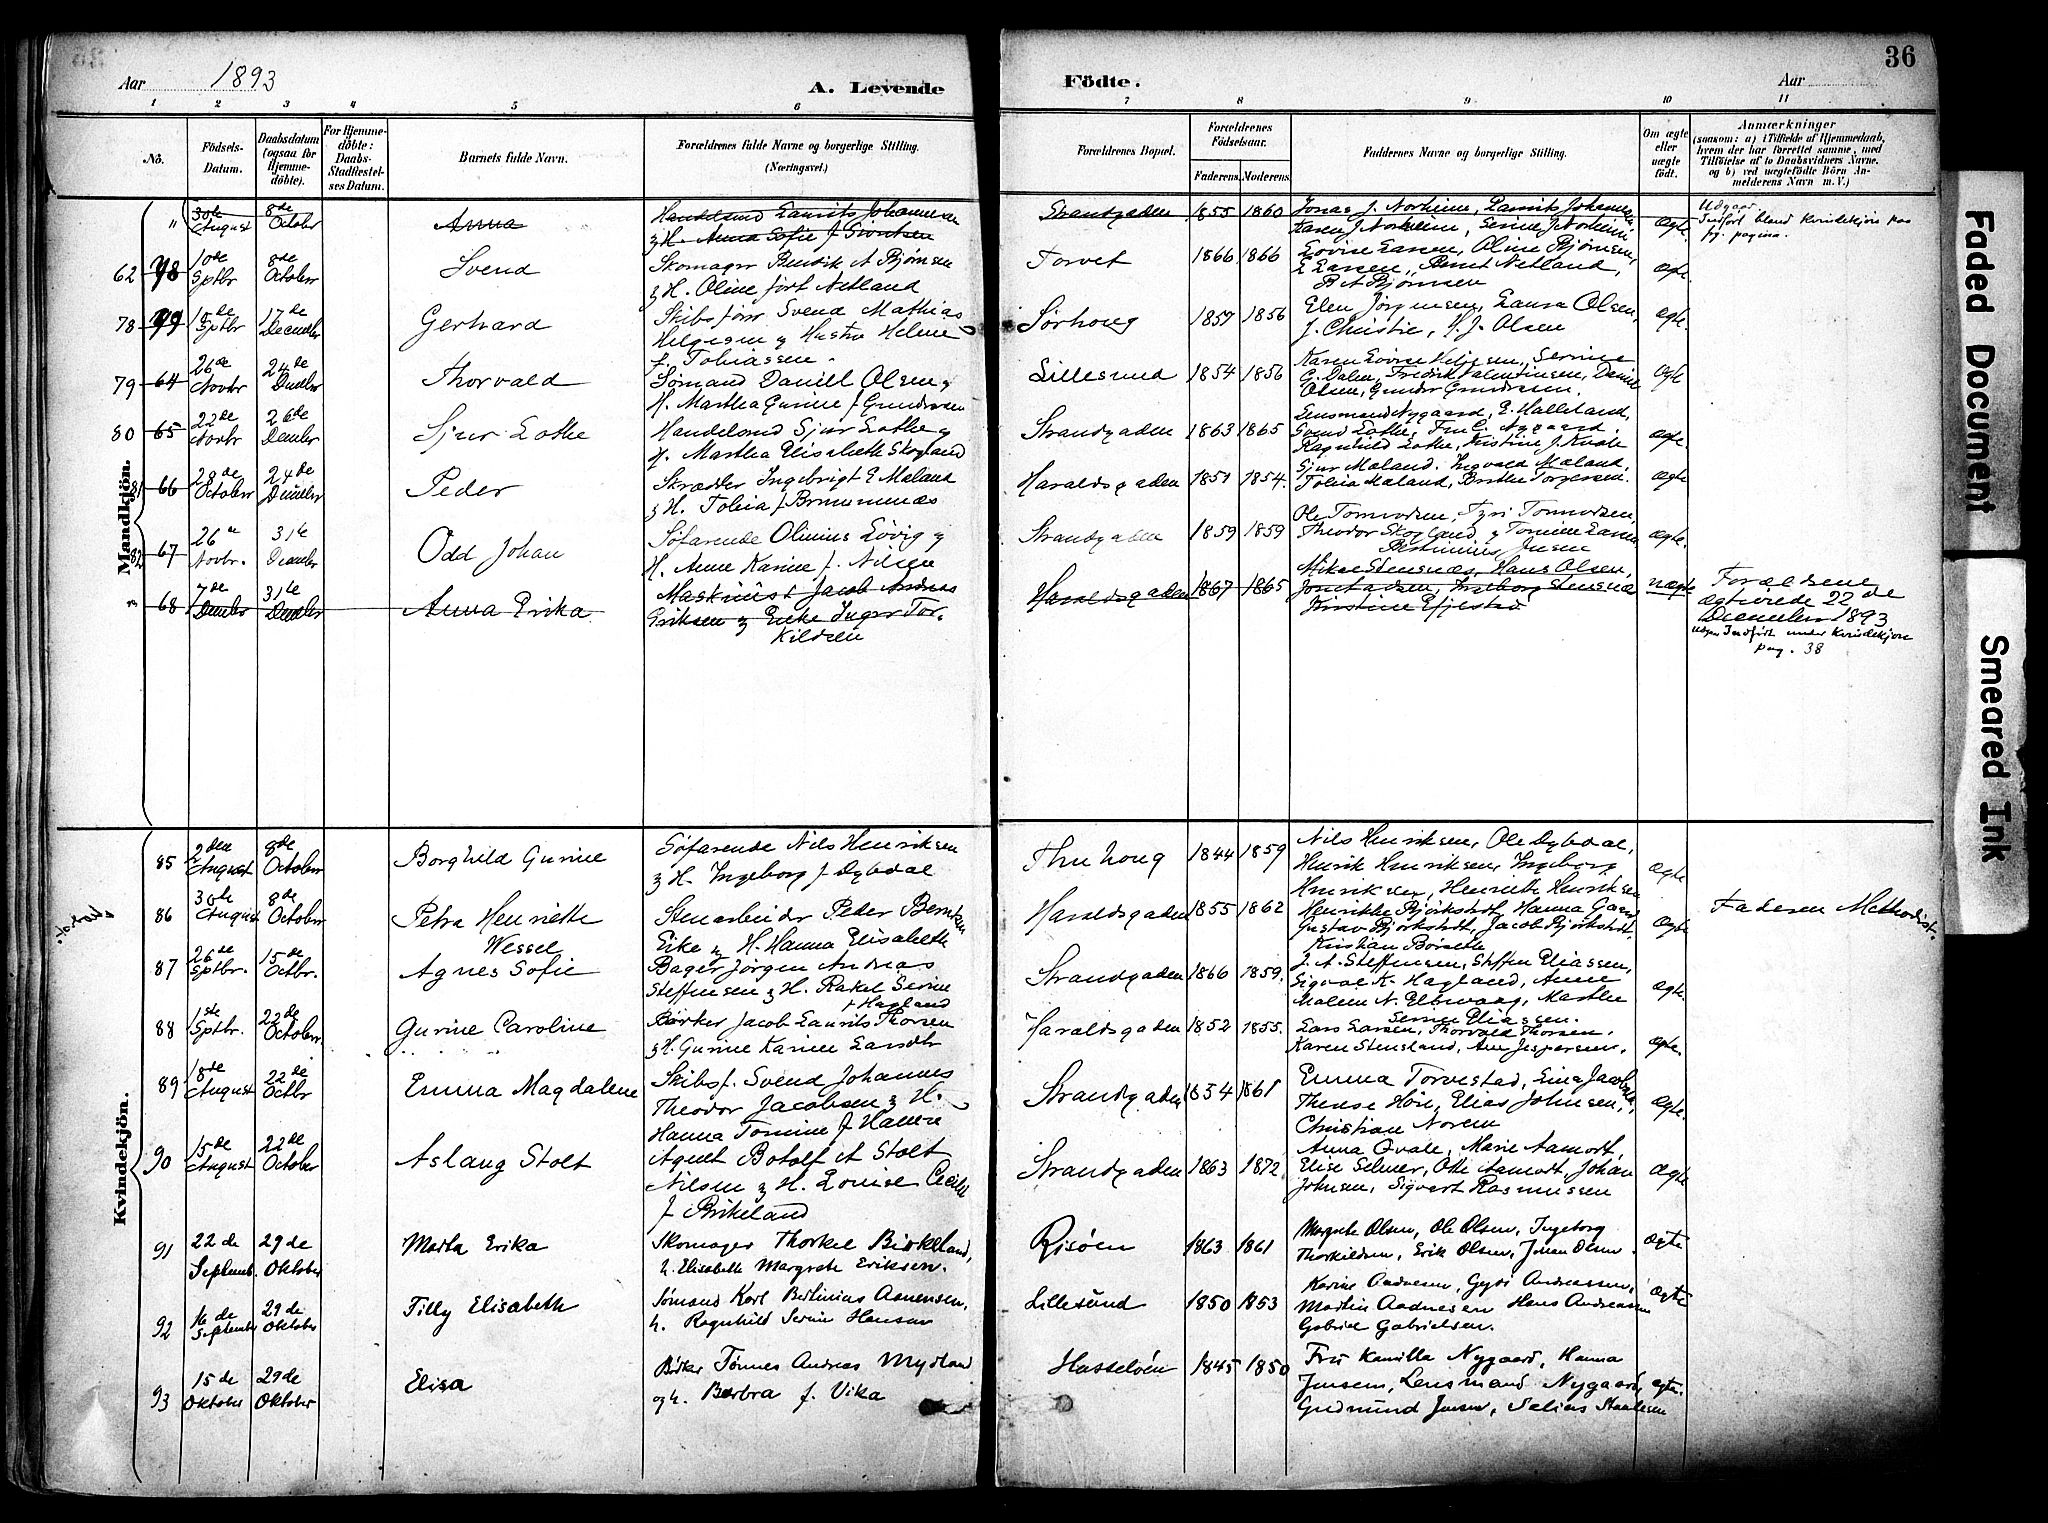 36
Aar 1893
A. Levende
Födte.
Aar
1 2 3 4 5 6 7 8 9 10 11
No.
Födsels-
Datum.
Daabsdatum
(ogsaa for
Hjemme-
döbte).
For Hjemme-
döbte:
Daabs-
Stadfestel-
ses Datum.
Barnets fulde Navn.
Forældrenes fulde Navne og borgerlige Stilling.
(Næringsvei.)
Forældrenes Bopæl.
Forældrenes
Födselsaar.
Faderens. Moderens.
Faddernes Navne og borgerlige Stilling.
Om ægte
eller
uægte
födt.
Anmærkninger
(saasom: a) i Tilfælde af Hjemmedaab,
hvem der har forrettet samme, med
Tilföielse af to Daabsvidners Navne,
og b) ved uægtefödte Börn An-
melderens Navn m. V.)
Mandkjön.
" 30de August 8de October Anna
Handelsmd Laurits Johannesen
& H. Anna Sofie f.
Strandgaden 1855 1860
Jonas J. Norheim, Laurits Johannesen,
Karen J Norheim, Serine J. Norheim
Ægte.
Udgaar.
Indført bland Kvindekjøn paa
pagina.
62 78 10de Sptbr 8de October Svend
Skomager Bendik A Bjørnsen
& H. Oline født Netland
Torvet 1866 1866
Lovise Larsen, Oline Bjørnsen,
E Larsen, Bernt Netland,
Bet Bjørnsen
Ægte.
78 79 15de Sptbr 17de Decembr Gerhard
Skibsfører Svend Mathias
Helgesen & Hustru Helene
f. Tobiassen.
Sørhoug 1859 1856
Elen Jørgensen, Laura Olsen,
J. Christie, H. J. Olsen
Ægte.
79 64 26de Novbr 24de Decbr Thorvald
Sømand Daniel Olsen &
H. Martha Gurine f Gundersen
Lillesund 1854 1856
Karen Lovise Helgesen, Serine
C. Dalen, Fredrik Valentinsen, Daniel
Olsen, Gunder Gundersen.
Ægte
80 65 22de Novbr 26de Decmbr Sjur Lothe
Handelsmd Sjur Lothe &
H. Martha Elisabeth Skogland
Strandgaden 1863 1865
Lensmand Nygaard, E. Halleland,
Svend Lothe, Fru C. Nygaard,
Ragnhild Lothe, Kristine J. Kvale
Ægte.
81 66 28de October 24de Decmbr Peder
Skrædder Ingebrigt E Maland
& H. Tobia f Brummenæs
Haraldsgaden 1851 1854.
Sjur Maland. Ingvald Maland,
Tobia Maland, Berthe Torgersen.
Ægte
82 67 26de Novbr. 31te Decembr Odd Johan
Søfarende Olinius Løvig &
H. Anne Karine f. Nilsen
Strandgaden 1859 1859
Ole Tonnesen, Tyri Tonnesen,
Theodor Skogland & Tomine Larsen
Bertinius Jensen
Ægte.
" 68 7de Decmbr 31te Decmbr Anna Erika
Maskinist Jacob Andreas
Eriksen & Enke Inger Tor-
kildsen
Haraldsgaden 1867 1865
Mikal Stensnæs, Hans Olsen,
Ingeborg Stensnæs
Kirstine Efjestad
uægte
Forældrene
ægteviede 22de
December 1893
Indført under Kvindekjøn
pag. 38
Kvindekjön.
85 2den August 8de October Borghild Gurine
Søfarende Nils Henriksen
& H. Ingeborg f Dybdal
1844 1859
Nils Henriksen, Ole Dybdal,
Henrik Henriksen, Ingeborg
Henriksen, Henriette Henriksen
Ægte
86 30de August 8de October Petra Henriette
Wessel
Stenarbeider Peder Berntsen
Eike & H. Hanna Elisabeth
Haraldsgaden 1855 1862
Henrikke Bjørkstedt, Hanna Gaard
Gustav Bjørkstedt, Jacob Bjørkstedt,
Kristian Børseth
Ægte
Faderen Methodist.
87 26de Sptbr. 15de Octbr. Agnes Sofie
Bager Jörgen Andreas
Steffensen & H. Rakel Serine
f Hagland
Strandgaden 1866 1859.
J. A. Steffensen, Steffen Eliassen,
Sigval K. Hagland, Anne
Malene N. Elbevaag, Marthe
Serine Eliassen.
Ægte.
88 1ste Sptbr. 22de October Gurine Caroline
Bødker Jacob Laurits Thorsen
& H. Gurine Karine Larsdtr
Haraldsgaden 1852 1855.
Lars Larsen, Thorvald Thorsen,
Karen Stensland, Ane Jespersen,
Ægte.
89 18de August 22de Octbr Emma Magdalene
Skibsf. Svend Johannes
Theodor Jacobsen & H.
Hanna Tomine f Hansen
Strandgaden 1854 1861
Emma Torvestad, Lina Jacobsen,
Therese Høie, Elias Johnsen,
Christian Norem
Ægte.
90 15de August 22de October Aslaug Stolt
Agent Botolf A Stolt
Nilsen & H. Louise Cecilie
f Birkeland
Strandgaden 1863 1872.
Anna Qvale, Marie Aamodt,
Elise Selmer, Otto Aamodt, Johan
Johnsen, Sigvart Rasmussen
Ægte
91 22de Septemb. 29de Oktober Marta Erika
Skomager Thorkel Birkeland,
h. Elisabeth Margrete Eriksen.
Risöen 1863 1861
Margrete Olsen, Ole Olsen, Ingeborg
Thorkildsen, Erik Olsen, Johan Olsen
ægte
92 16de September 29de Oktober Tilly Elisabeth
Sømand Karl Bertinius Aanensen,
h. Ragnhild Serine Hansen
Lillesund 1850 1853
Karine Aadnesen, Gyri Andreassen,
Martin Aadnesen Hans Andreassen
Gabriel Gabrielsen.
ægte
93 15de Oktober 29de Oktober Elisa
Bødker Tønnes Andreas Mydland
og h. Barbra f. Vika
Hasseløen 1845 1850
Fru Kamilla Nygaard, Hanna
Jensen, Lensmand Nygaard,
Gudmund Jensen, Salius Staalesen
ægte.
Faded Document
Smeared Ink